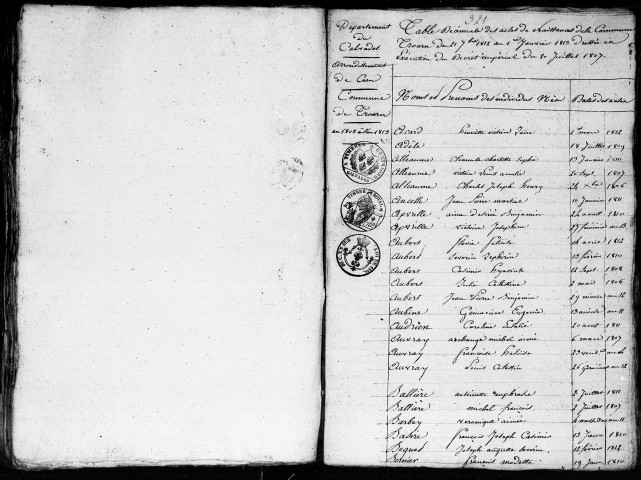 321
Département
du
Calvados
Arrondissement
de Caen
Commune
de Troarn
an 1803 à l'an 1813
Table Décennale des actes de Naissances de la Commune
Troarn du 21 7bre 1812 au 1er Janvier 1813 dressée en
Exécution du Décret impérial du 20 Juillet 1807.
Noms et Prénoms des individus Nés Dates des actes
Acard henriette victoire 1 mars 1812
Adèle 18 Juillet 1809
Alleaume charlotte Sophie 13 Janvier 1810
Alleaume victoire 20 Sept. 1807
Alleaume Charles Joseph henry 1806
Ancelle Jean Pierre martial 10 Janvier 1811
Apville aimé désiré Benjamin 24 août 1810
Apville victoire Joséphine 27
Aubert flavie félicité 14 août 1812
Aubert Séverin Zéphirin 12 février 1810
Aubert Casimir hyacinthe 12 Sept. 1808
Aubert Julie Célestine 2 mai 1806
Aubert Jean Pierre Benjamin 27 an 12
Aubine Eugénie 13 an 11
Audrien Caroline Estelle 20 août 1811
Auvray archange michel aimé 6 mars 1807
Auvray françoise 23 vend.
Auvray Louis Célestin 26 an 12
Ballière antoinette euphrasie 2 Juillet 1811
Ballière michel françois 2 Juillet 1807
Barbey véronique aimée an 11
françois Joseph Casimir 13 Janv 1810
Joseph auguste 12 février 1812
françois modeste 19 Janv 1810